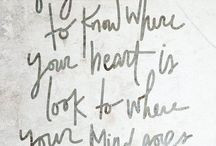 to know where
your heart is
look to where
your mind goes